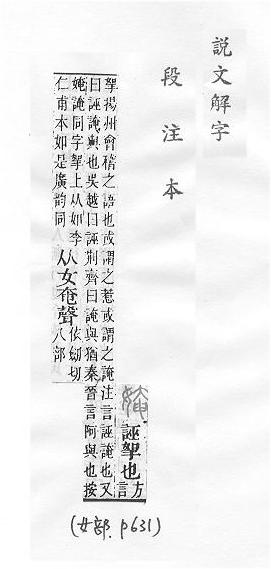 説文解字
段注本
㛪 誣挐也 方言
挐揚州會稽之語也或謂之惹或謂之䛳注言誣䛳也又
曰誣䛳與也吳越曰誣荊齊曰䛳與猶秦晉言阿與也按
㛪䛳同字挐上从如李
仁甫本如是廣韵同
从女奄聲
依劒切
八部
(女部. P631)